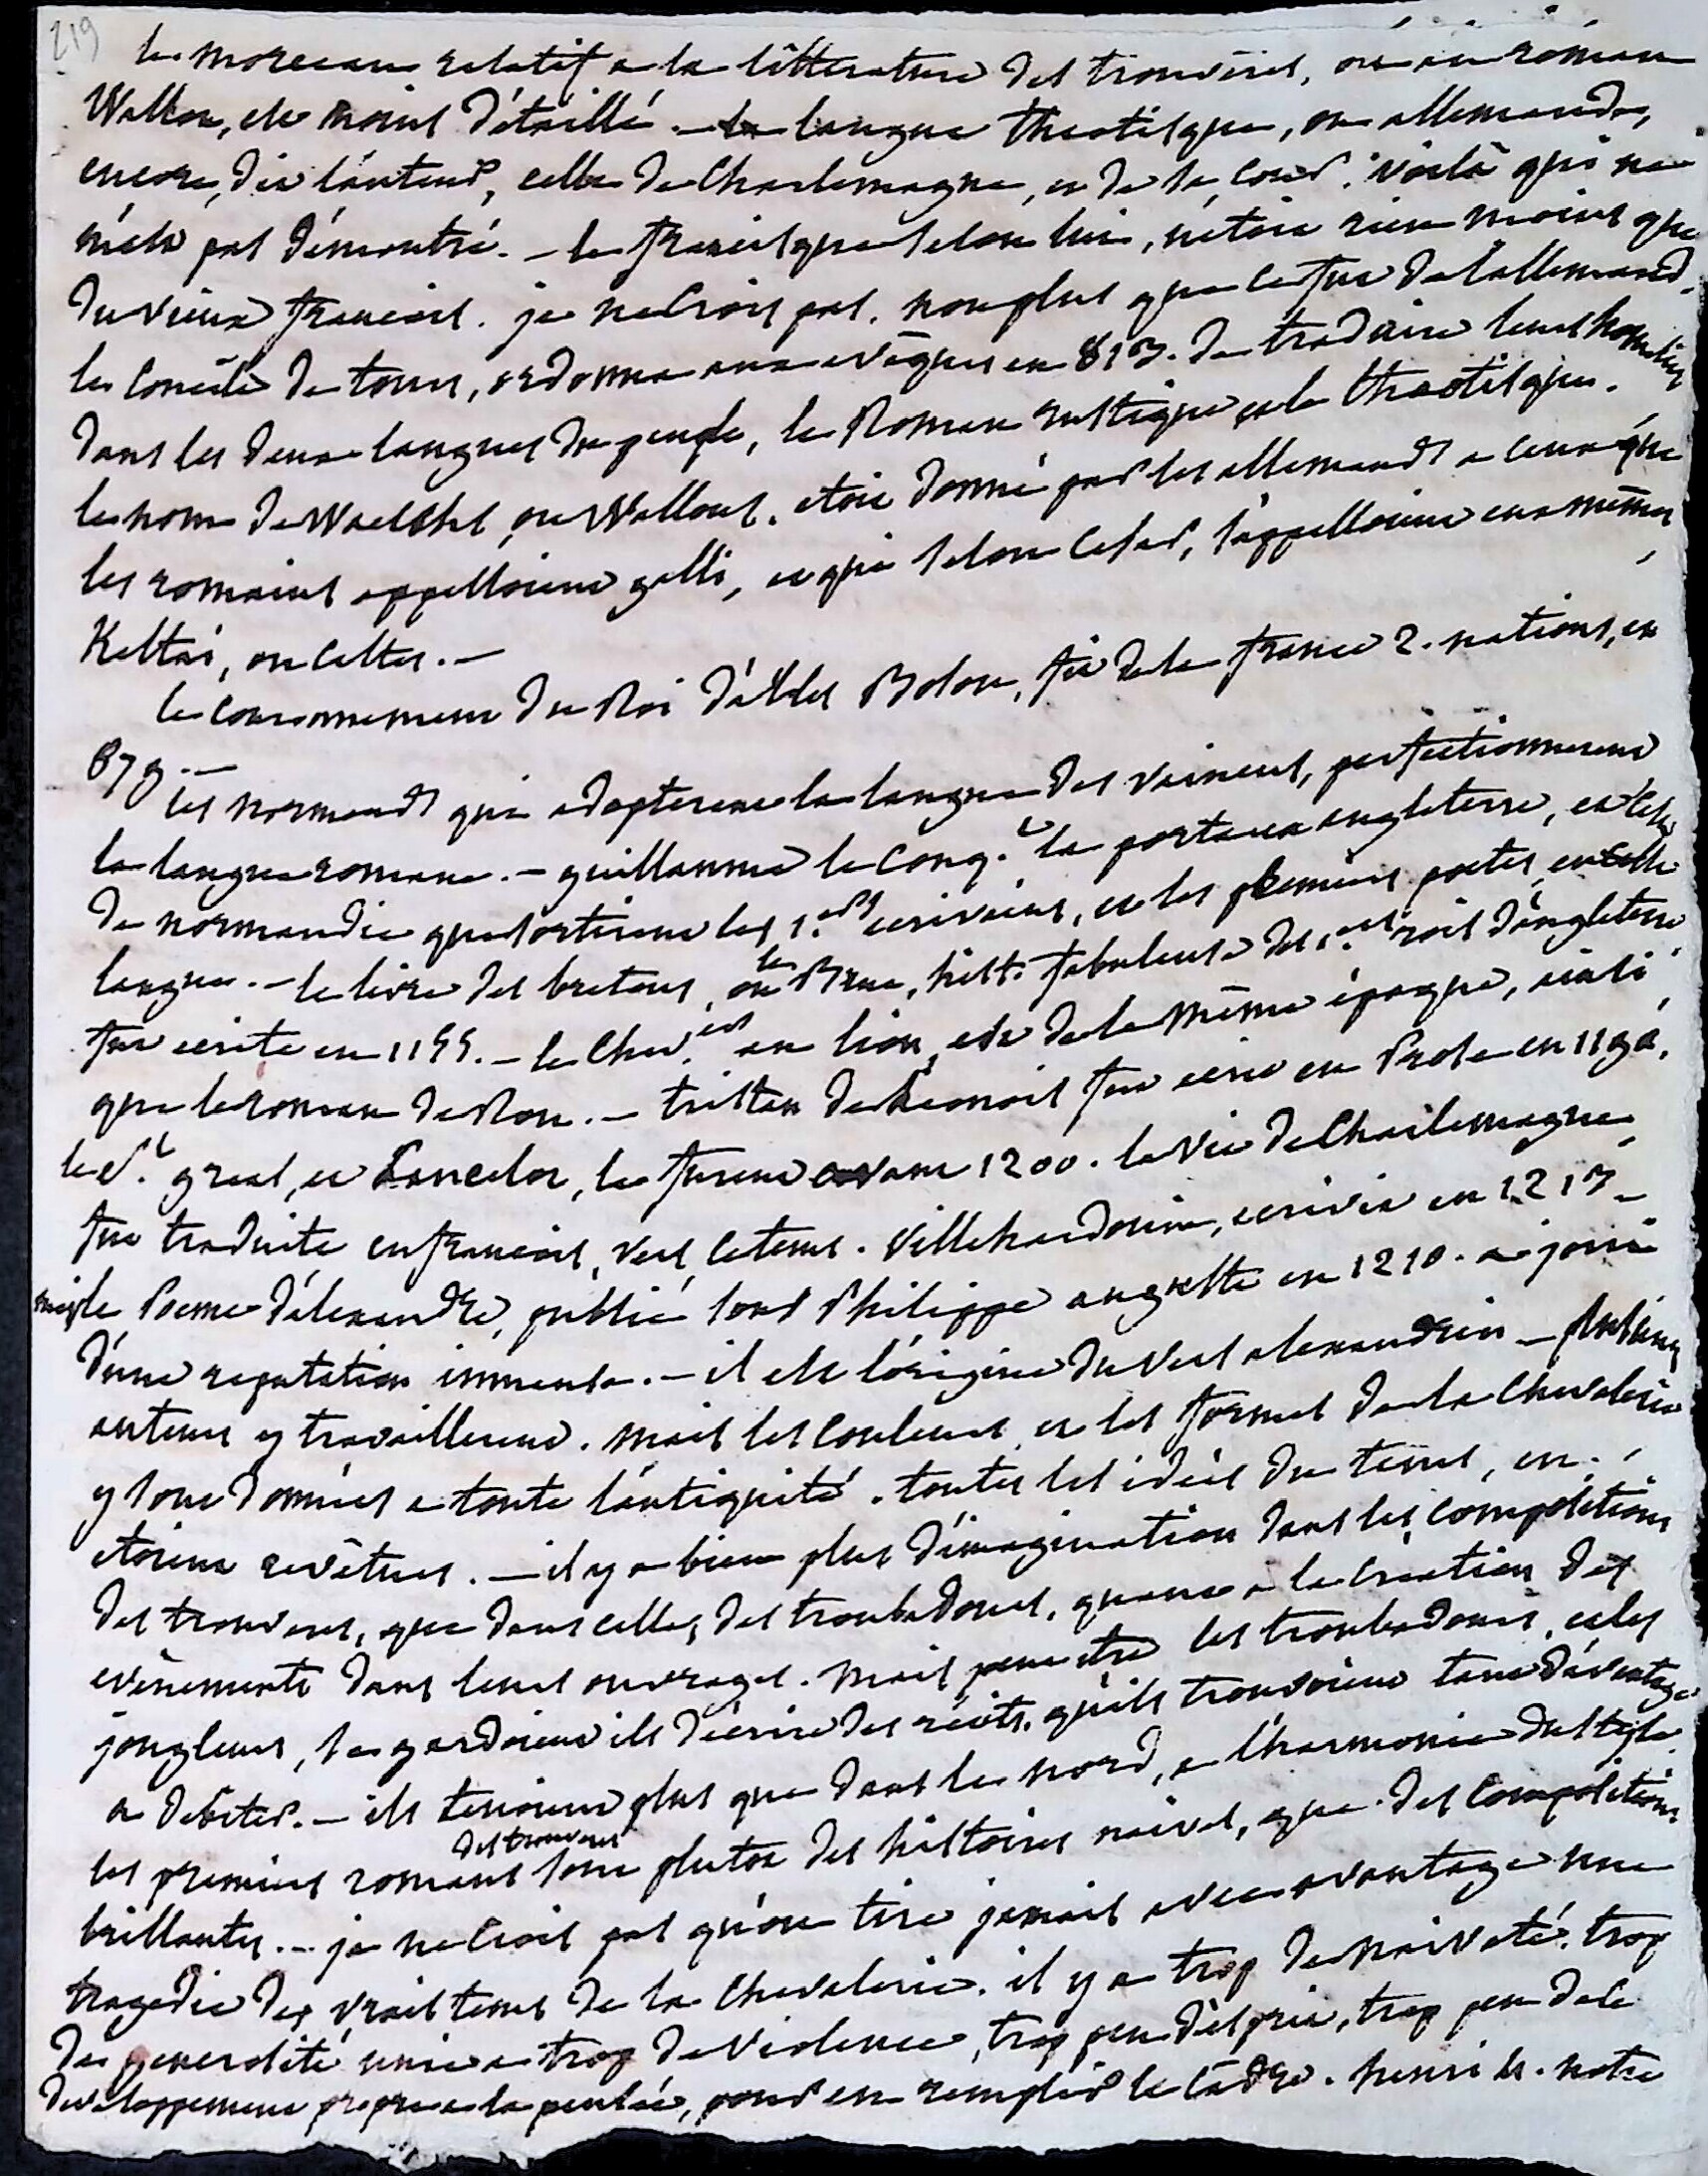 219
le morceau relatif a la littérature des trouvères, ou au roman
Wallon, est moins détaillé. - la langue theotisque, ou allemande,
encore, dit l'auteur, celle de Charlemagne, et de sa cour. voilà qui ne
m'est pas démontré. - le francisque selon lui, n'étoit rien moins que
du vieux francois. je ne crois pas, non plus que ce fut de l'allemand.
le concile de tours, ordonna aux evêques en 813. de traduire leurs homélies
dans les deux langues du peuple, le Roman rustique et le theotisque.
le nom de Waelchs, ou Wallons, etoit donné par les allemands a ceux que
les romains appelloient galli, et qui selon Cesar, s'appelloient eux mêmes
Keltai, ou celtes. -
le couronnement du Roi d'Arles Boson, fit de la france 2. nations, en
879. -
les normands qui adopterent la langue des vaincus, perfectionnerent
la langue romane. - guillaume le conq.t la porta en angleterre, et c'est
de normandie que sortirent les 1.ers ecrivains, et les premiers poetes, en cette
langue. - le livre des bretons, ou le Brut, hist. fabuleuse des 1.ers rois d'angleterre
fut ecrite en 1155. - le Chev.ier au lion, est de la même époque, ainsi
que le roman de Rou. - tristan de Leonois fut ecrit en Prose en 1190.
le S.t greal, et Lancelot, le furent avant 1200. la vie de Charlemagne
fut traduite en francois, vers ce tems. Villehardouin, ecrivit en 1213 -
mais le Poeme d'alexandre, publié sous Philippe auguste en 1210. a joui
d'une reputation immense. - il est l'origine du vers alexandrin - plusieurs
auteurs y travaillerent. mais les couleurs, et les formes de la chevalerie
y sont données a toute l'antiquité. toutes les idées du tems, en
etoient revêtues. - il y a bien plus d'imagination dans les compositions
des trouveres, que dans celles des troubadours, quant a la création des
evènements dans leurs ouvrages. mais peut etre les troubadours, et les
jongleurs, se gardoient ils d'écrire des récits, qu'ils trouvoient tant d'avantage
a debiter. - ils tenoient plus que dans le nord, a l'harmonie du style.
les premiers romans des trouveres sont plutot des histoires naives, que des compositions
brillantes. - je ne crois pas qu'on tire jamais avec avantage une
tragédie des vrais tems de la Chevalerie. il y a trop de naiveté, trop
de generosité unie a trop de violence, trop peu d'esprit, trop peu de ce
developpement propre a la pensée, pour en remplir le cadre. henri 4. notre